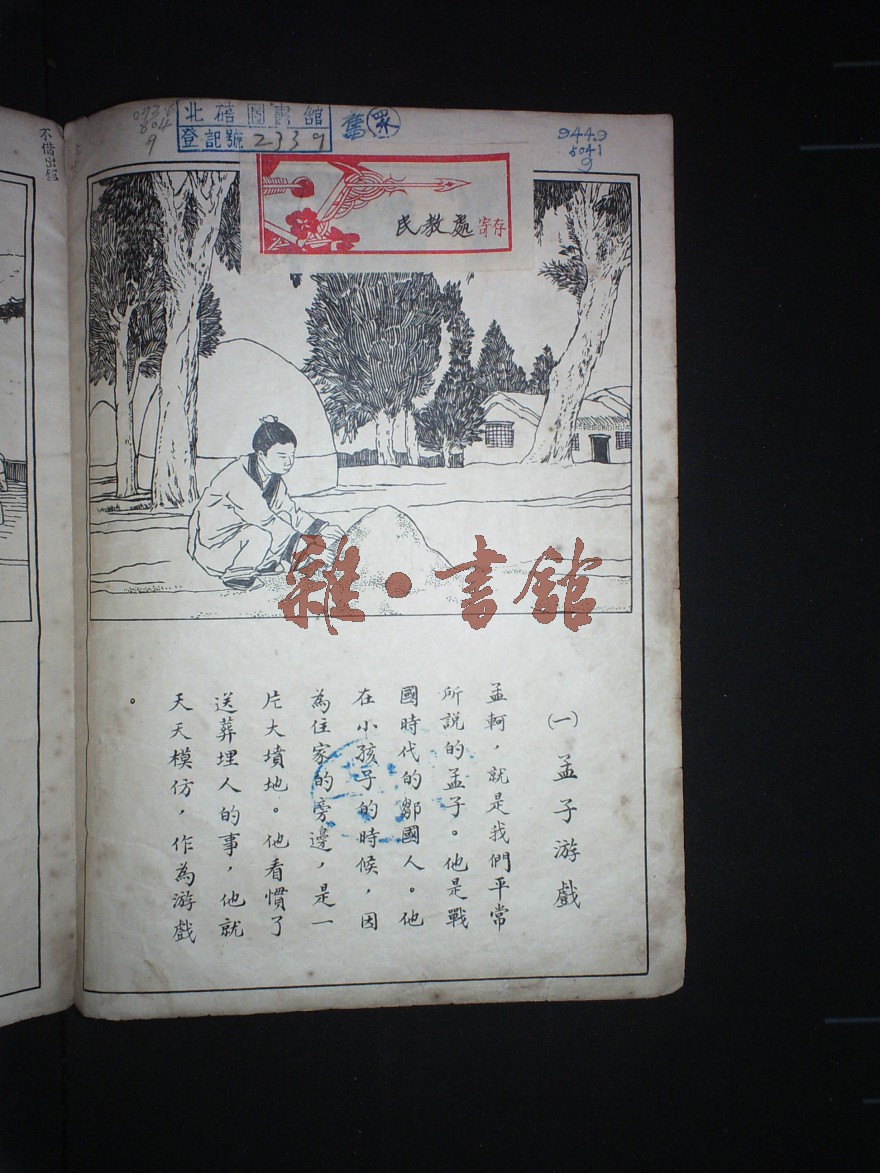 不借出館
北碚圖書館
登記號 2339
舊
944.9
5041
9
民教處寄存
雜·書館
㈠ 孟子游戲
孟軻，就是我們平常
所說的孟子。他是戰
國時代的鄒國人。他
在小孩子的時候，因
為住家的旁邊，是一
片大墳地。他看慣了
送葬埋人的事，他就
天天模仿，作為游戲
。